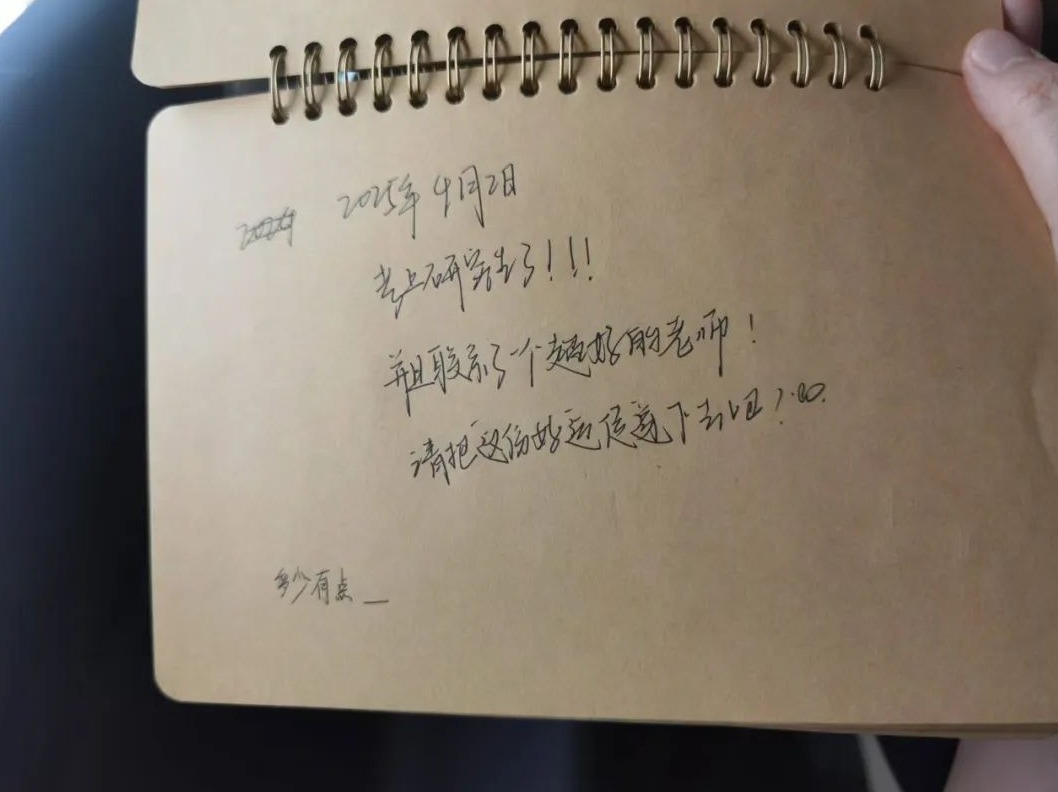 2025年4月2日
考上研究生了!!!
并且联系了一个趟好的老师!
请把这份好运延续下去吧
多少有点_